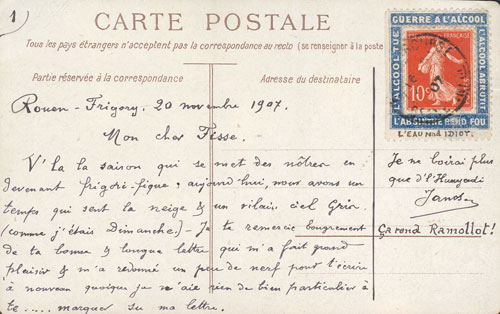 1)
CARTE POSTALE
Tous les pays étrangers n'acceptent pas la correspondance au recto (se renseigner à la poste
Partie réservée à la correspondance
Adresse du destinataire
GUERRE A L'ALCOOL
L'ALCOOL TUE
L'ALCOOL ABRUTIT
10c
07
L'ABSINTHE REND FOU
L'EAU rend IDIOT.
Rouen-Frigory, 20 novembre 1907.
Mon cher Fisse.
V'là la saison qui se met des nôtres en
devenant frigori-fique; aujourd'hui, nous avons un
temps qui sent la neige & un vilain ciel Gris
(comme j'étais Dimanche) - Je te remercie bougrement
de ta bonne & longue lettre qui m'a fait grand
plaisir & m'a redonné un peu de nerf pour t'écrire
à nouveau quoique je n'aie rien de bien particulier à
te ..... marquer su ma lettre.
Je ne boirai plus
que d'l'Hunyadi
Janos
Ça rend Ramollot!